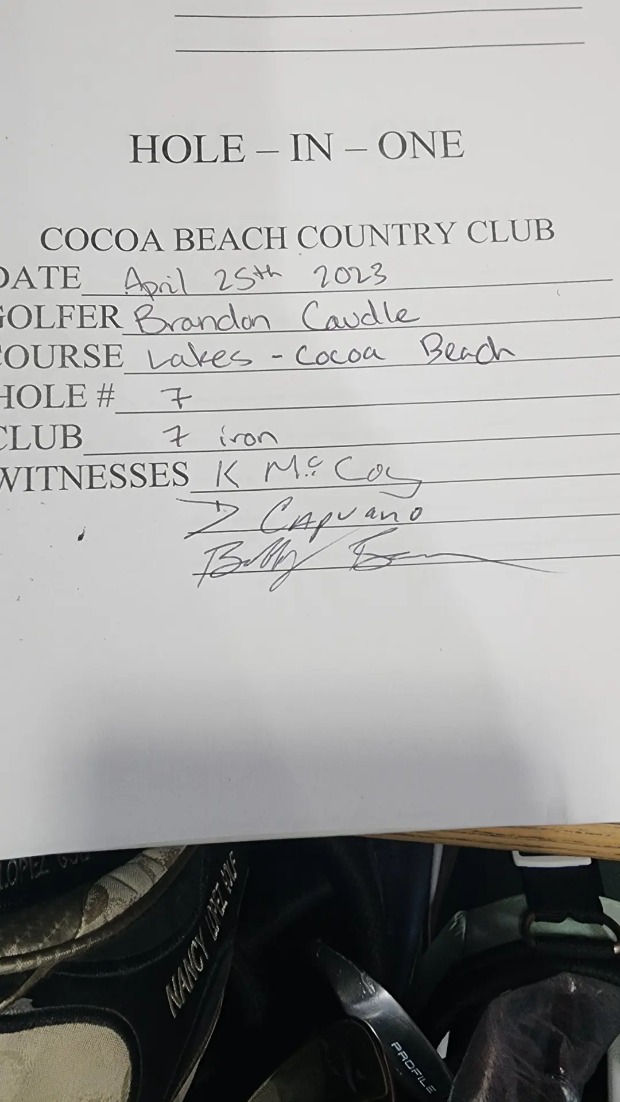 HOLE – IN – ONE
COCOA BEACH COUNTRY CLUB
DATE April 25th 2023
GOLFER Brandon Caudle
COURSE Lakes - Cocoa Beach
HOLE # 7
CLUB 7 iron
WITNESSES K McCoy
Z Capuano
Bobby
LOPEZ GOLF
NANCY LOPEZ GOLF
PROFILE